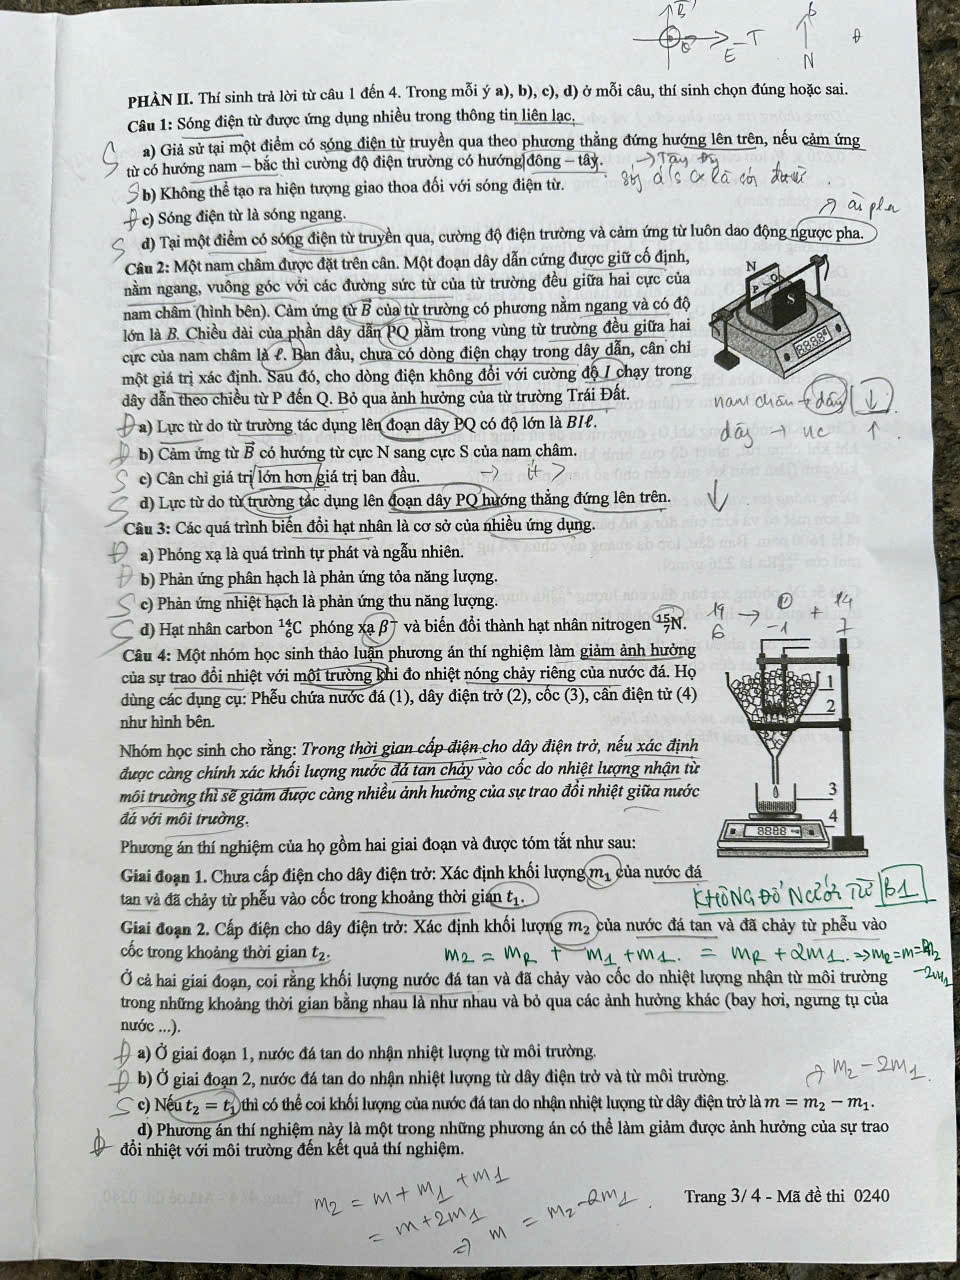 B
E
T
N
PHẦN II. Thí sinh trả lời từ câu 1 đến 4. Trong mỗi ý a), b), c), d) ở mỗi câu, thí sinh chọn đúng hoặc sai.
Câu 1: Sóng điện từ được ứng dụng nhiều trong thông tin liên lạc.
S a) Giả sử tại một điểm có sóng điện từ truyền qua theo phương thẳng đứng hướng lên trên, nếu cảm ứng
từ có hướng nam – bắc thì cường độ điện trường có hướng đông – tây.
S b) Không thể tạo ra hiện tượng giao thoa đối với sóng điện từ.
Đ c) Sóng điện từ là sóng ngang.
S d) Tại một điểm có sóng điện từ truyền qua, cường độ điện trường và cảm ứng từ luôn dao động ngược pha.
Câu 2: Một nam châm được đặt trên cân. Một đoạn dây dẫn cứng được giữ cố định,
nằm ngang, vuông góc với các đường sức từ của từ trường đều giữa hai cực của
nam châm (hình bên). Cảm ứng từ B⃗ của từ trường có phương nằm ngang và có độ
lớn là B. Chiều dài của phần dây dẫn PQ nằm trong vùng từ trường đều giữa hai
cực của nam châm là ℓ. Ban đầu, chưa có dòng điện chạy trong dây dẫn, cân chỉ
một giá trị xác định. Sau đó, cho dòng điện không đổi với cường độ I chạy trong
dây dẫn theo chiều từ P đến Q. Bỏ qua ảnh hưởng của từ trường Trái Đất.
N
P
Q
S
8888
nam châm → dây ↓
dây → nc ↑
Đ a) Lực từ do từ trường tác dụng lên đoạn dây PQ có độ lớn là BIℓ.
Đ b) Cảm ứng từ B⃗ có hướng từ cực N sang cực S của nam châm.
S c) Cân chỉ giá trị lớn hơn giá trị ban đầu.
S d) Lực từ do từ trường tác dụng lên đoạn dây PQ hướng thẳng đứng lên trên.
Câu 3: Các quá trình biến đổi hạt nhân là cơ sở của nhiều ứng dụng.
Đ a) Phóng xạ là quá trình tự phát và ngẫu nhiên.
Đ b) Phản ứng phân hạch là phản ứng tỏa năng lượng.
S c) Phản ứng nhiệt hạch là phản ứng thu năng lượng.
S d) Hạt nhân carbon ¹⁴₆C phóng xạ β⁻ và biến đổi thành hạt nhân nitrogen ¹⁵₇N.
Câu 4: Một nhóm học sinh thảo luận phương án thí nghiệm làm giảm ảnh hưởng
của sự trao đổi nhiệt với môi trường khi đo nhiệt nóng chảy riêng của nước đá. Họ
dùng các dụng cụ: Phễu chứa nước đá (1), dây điện trở (2), cốc (3), cân điện tử (4)
như hình bên.
1
2
3
4
8888
Nhóm học sinh cho rằng: Trong thời gian cấp điện cho dây điện trở, nếu xác định
được càng chính xác khối lượng nước đá tan chảy vào cốc do nhiệt lượng nhận từ
môi trường thì sẽ giảm được càng nhiều ảnh hưởng của sự trao đổi nhiệt giữa nước
đá với môi trường.
Phương án thí nghiệm của họ gồm hai giai đoạn và được tóm tắt như sau:
Giai đoạn 1. Chưa cấp điện cho dây điện trở: Xác định khối lượng m₁ của nước đá
tan và đã chảy từ phễu vào cốc trong khoảng thời gian t₁.
KHÔNG ĐỔ NƯỚC TỪ B1
Giai đoạn 2. Cấp điện cho dây điện trở: Xác định khối lượng m₂ của nước đá tan và đã chảy từ phễu vào
cốc trong khoảng thời gian t₂.
m₂ = m_R + m₁ + m₁. = m_R + 2m₁.
Ở cả hai giai đoạn, coi rằng khối lượng nước đá tan và đã chảy vào cốc do nhiệt lượng nhận từ môi trường
trong những khoảng thời gian bằng nhau là như nhau và bỏ qua các ảnh hưởng khác (bay hơi, ngưng tụ của
nước ...).
Đ a) Ở giai đoạn 1, nước đá tan do nhận nhiệt lượng từ môi trường.
Đ b) Ở giai đoạn 2, nước đá tan do nhận nhiệt lượng từ dây điện trở và từ môi trường.
m₂ – 2m₁.
S c) Nếu t₂ = t₁ thì có thể coi khối lượng của nước đá tan do nhận nhiệt lượng từ dây điện trở là m = m₂ − m₁.
Đ d) Phương án thí nghiệm này là một trong những phương án có thể làm giảm được ảnh hưởng của sự trao
đổi nhiệt với môi trường đến kết quả thí nghiệm.
m₂ = m + m₁ + m₁
= m + 2m₁
⇒ m = m₂ – 2m₁.
Trang 3/ 4 - Mã đề thi 0240